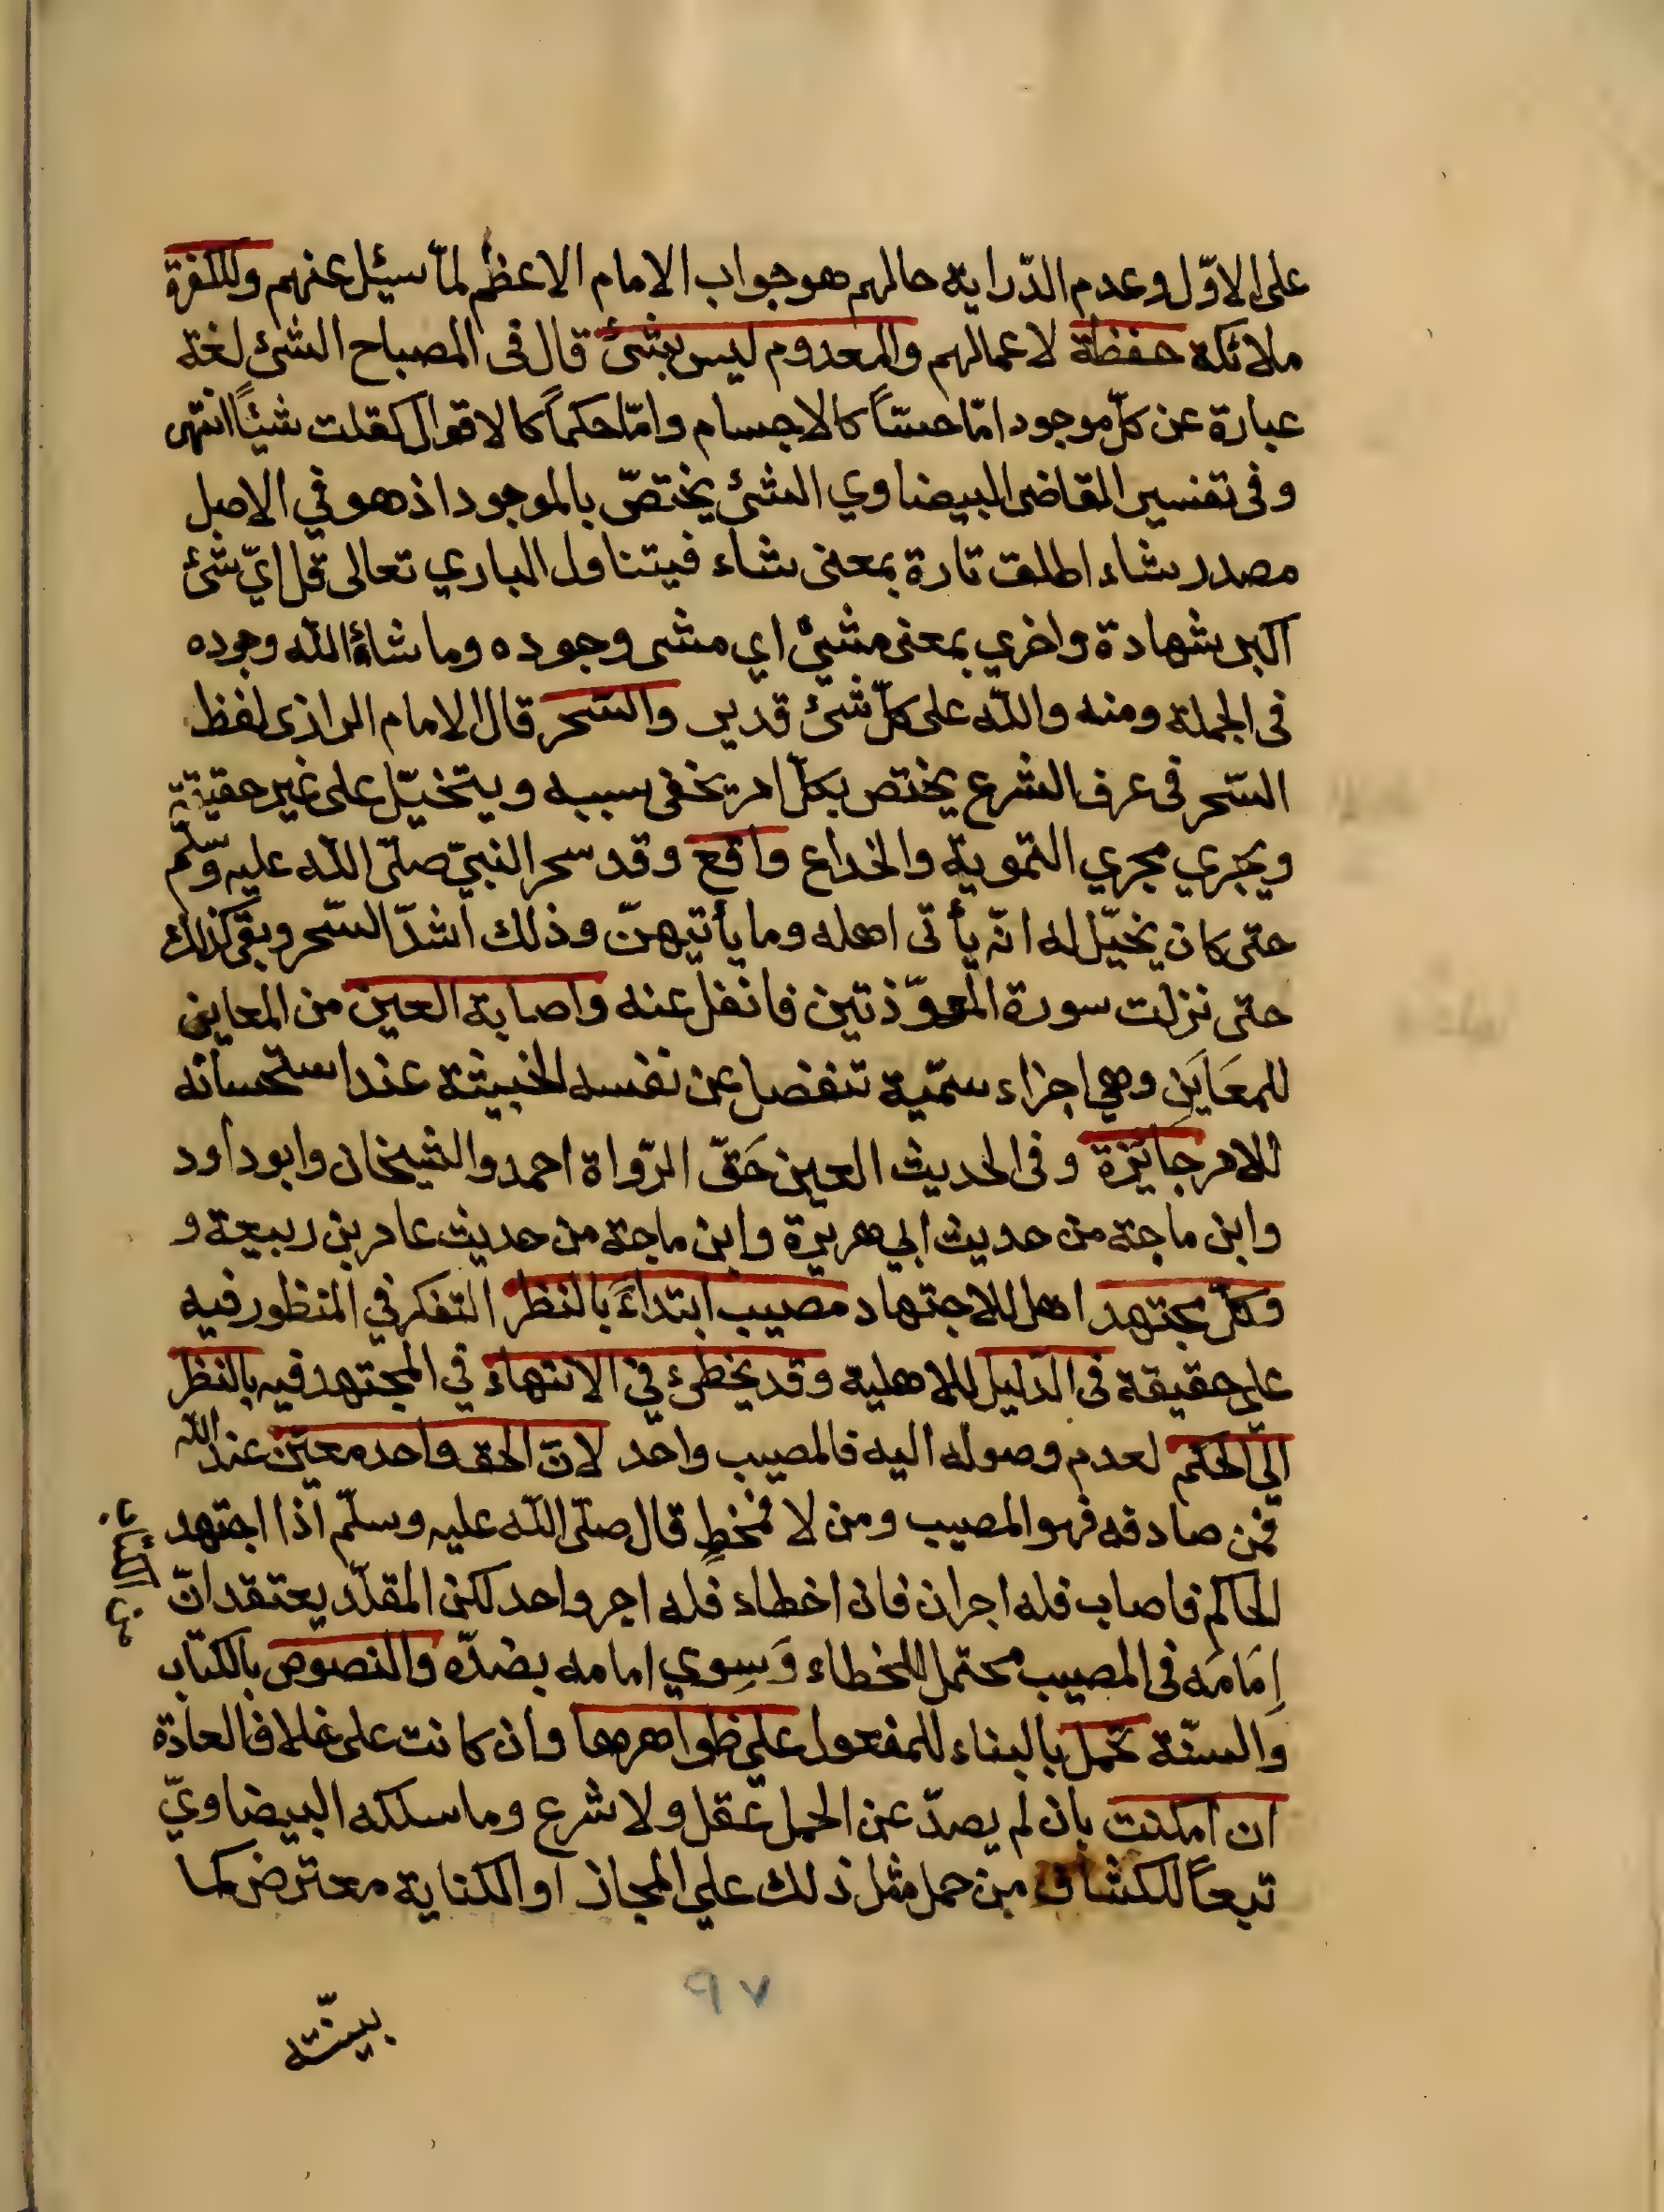 على الاوّل وعدم الدّراية حالهم هو جواب الامام الاعظم لمّا سيئل عنهم وللكفرة
ملائكة حفظة لاعمالهم والمعدوم ليس بشئ قال فى المصباح الشئ لغة
عبارة عن كلّ موجود امّا حسّاً كالاجسام وامّا حكماً كالاقوال كقلت شيئاً انتهى
وفى تفسير القاضى البيضاوي الشئ يختصّ بالموجود اذ هو في الاصل
مصدر شاء اطلق تارة بمعنى شاء فيتناول الباري تعالى قل ايّ شئ
اكبر شهادة واخري بمعنى مشيئ اي مشى وجوده وما شاؤ الله وجوده
فى الجملة ومنه والله على كلّ شئ قدير والسّحر قال الامام الرازى لفظ
السّحر فى عرف الشرع يختص بكلّ امر يخفى سببه ويتخيّل على غير حقيقته
ويجري مجري التموية والخداع واقع وقد سحر النبيّ صلّى الله عليه وسلّم
حتى كان يخيّل له انّه يأتى اهله وما يأتيهنّ وذلك اشدّ السّحر وبقى كذلك
حتى نزلت سورة المعوّذتين فانفل عنه واصابة العين من المعاين
للمعَايَن وهي اجزاء سمّية تنفصل عن نفسه الخبيثة عند استحسانه
للامر جايزة وفى الحديث العين حَقّ الرّواة احمد والشيخان وابوداود
وابن ماجة من حديث ابي هريرة وابن ماجة من حديث عامر بن ربيعة و
وكلّ مجتهد اهل للاجتهاد مصيب ابتداءً بالنظر التفكر في المنظور فيه
على حقيقة فى الدّليل للاهلية وقد يخطئ في الانتهاء في المجتهد فيه بالنظر
الي الحكم لعدم وصوله اليه فالمصيب واحد لانّ الحق واحد معيّن عند الله
فمن صادفه فهو المصيب ومن لا فمخطٍ قال صلّى الله عليه وسلّم اذا اجتهد
الحاكم فاصاب فله اجران فان اخطاء فله اجر واحد لكن المقلّد يعتقد انّ
اِمَامَه فى المصيب محتمل للخطاء وَسِوي امامه بضدّه والنصوص بالكتاب
والسنّة تحمل بالبناء للمفعول علي ظواهرها وان كانت على خلاف العادة
ان امكنت بان لم يصدّ عن الحمل عقل ولا شرع وما سلكه البيضاويّ
تبعاً للكشاف من حمل مثل ذلك علي المجاز او الكناية معترض كما
٩٧
بيّنته